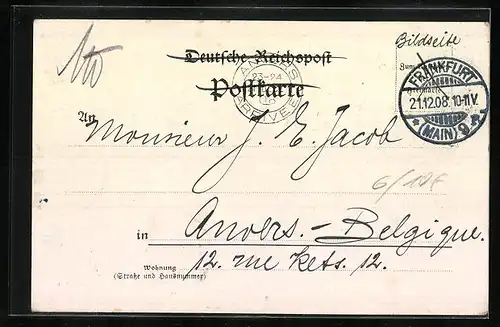 Bildseite
Deutsche Reichspost
ANVERS
23-24
ARRIVEE
Postkarte
FRANKFURT
21.12.08. 10-11V.
* (MAIN) 9
An
Monsieur J. E. Jacob
6/
in
Anvers. - Belgique.
Wohnung
(Straße und Hausnummer)
12. rue Kets. 12.